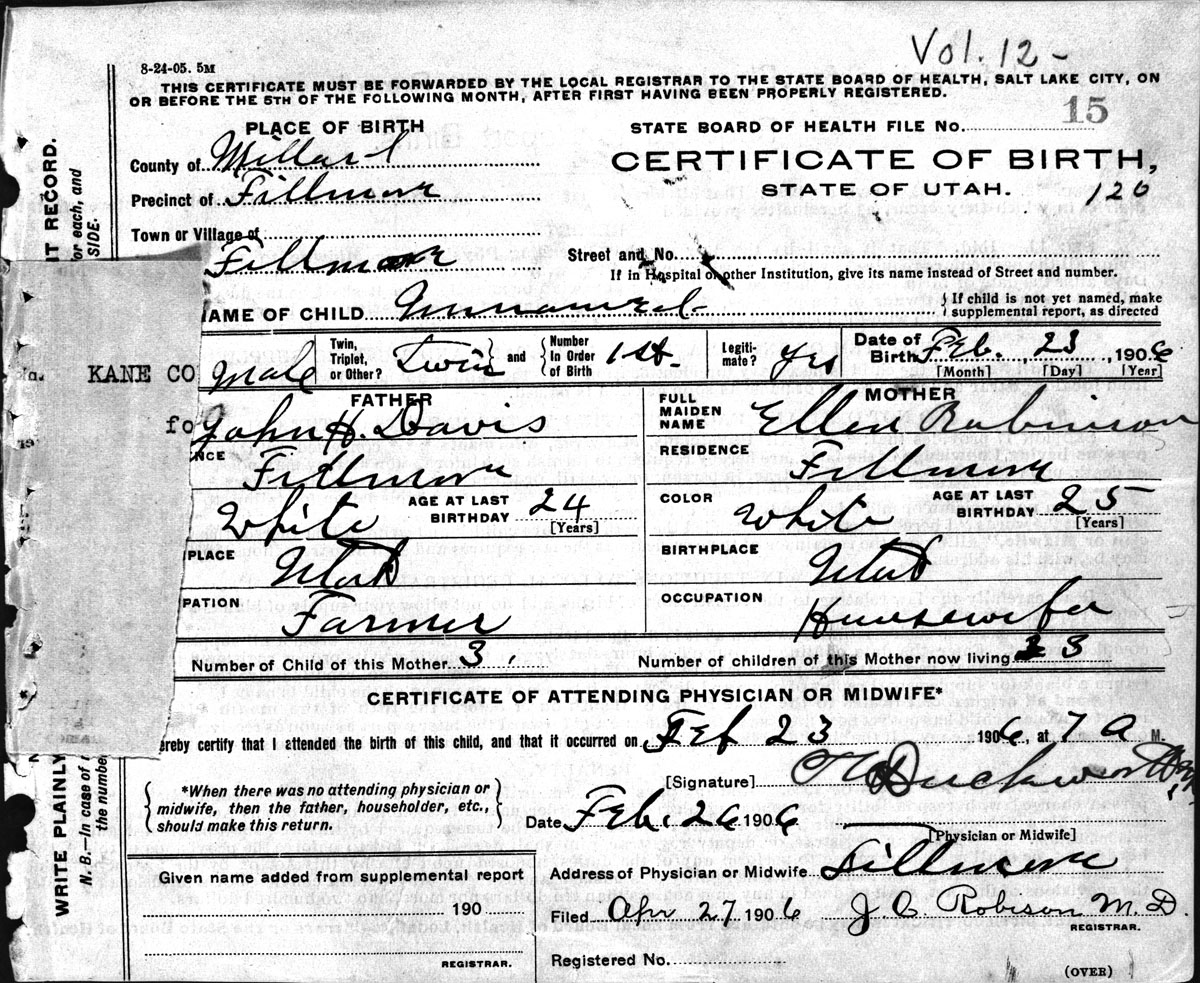 Vol. 12-
8-24-05. 5M
THIS CERTIFICATE MUST BE FORWARDED BY THE LOCAL REGISTRAR TO THE STATE BOARD OF HEALTH, SALT LAKE CITY, ON
OR BEFORE THE 5TH OF THE FOLLOWING MONTH, AFTER FIRST HAVING BEEN PROPERLY REGISTERED.
PLACE OF BIRTH
STATE BOARD OF HEALTH FILE No. 15
County of Millard
CERTIFICATE OF BIRTH,
Precinct of Fillmore
STATE OF UTAH. 120
Town or Village of
Fillmore
Street and No.
If in Hospital or other Institution, give its name instead of Street and number.
NAME OF CHILD Unnamed
{If child is not yet named, make
supplemental report, as directed
Male Twin, Triplet, or Other? Twin } and { Number In Order of Birth 1st Legiti- mate? Yes Date of Birth Feb. 23, 1906
[Month] [Day] [Year]
KANE CO
fo
FATHER
John H. Davis
FULL MAIDEN NAME
MOTHER
Ellen Robinson
NCE Fillmore
RESIDENCE Fillmore
White AGE AT LAST BIRTHDAY 24 [Years]
COLOR White AGE AT LAST BIRTHDAY 25 [Years]
PLACE Utah
BIRTHPLACE Utah
PATION Farmer
OCCUPATION Housewife
Number of Child of this Mother 3. Number of children of this Mother now living 3
CERTIFICATE OF ATTENDING PHYSICIAN OR MIDWIFE*
ereby certify that I attended the birth of this child, and that it occurred on Feb 23 1906, at 7 a M.
{*When there was no attending physician or
midwife, then the father, householder, etc.,
should make this return.}
[Signature] Duckworth
Date Feb. 26 1906
[Physician or Midwife]
Address of Physician or Midwife Fillmore
Given name added from supplemental report
190
REGISTRAR.
Filed Apr 27 1906 J. C. Robison M.D.
REGISTRAR.
Registered No.
(OVER)
T RECORD.
or each, and
SIDE.
WRITE PLAINLY
N. B.—In case of
the number